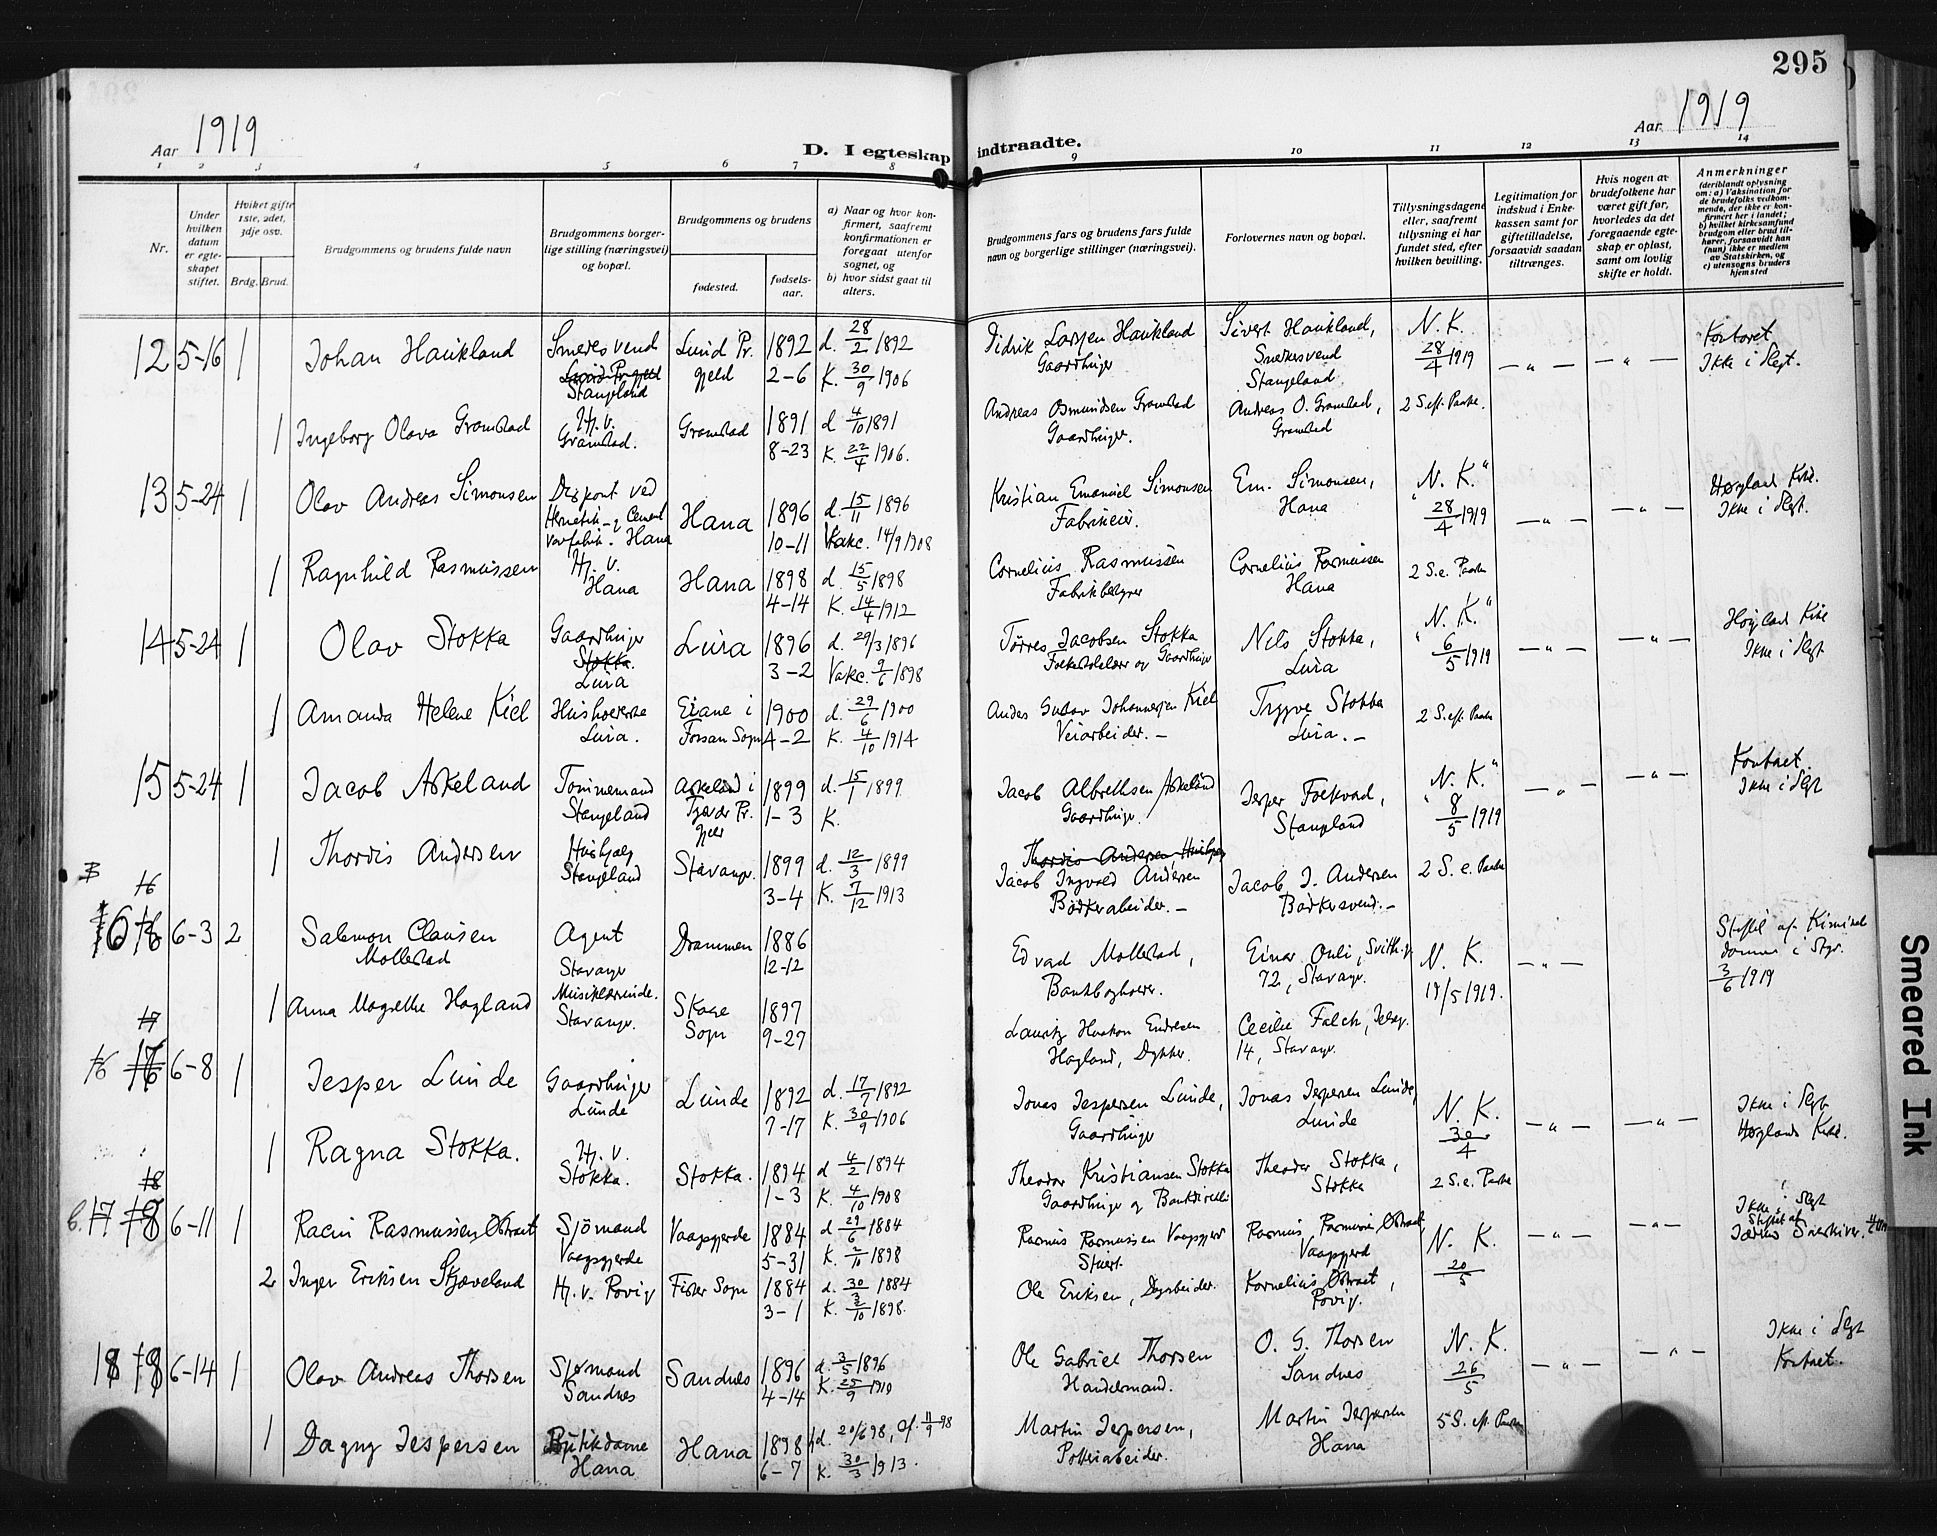 295
Aar 1919
D. I egteskap indtraadte.
Aar 1919
1 2 3 4 5 6 7 8 9 10 11 12 13 14
Nr.
Under hvilken datum er egteskapet stiftet.
Hvilket gifte 1ste, 2det, 3dje osv.
Brdg. Brud.
Brudgommens og brudens fulde navn
Brudgommens borgerlige stilling (næringsvei) og bopæl.
Brudgommens og brudens
fødested.
fødselsaar.
a) Naar og hvor konfirmert, saafremt konfirmationen er foregaat utenfor sognet, og
b) hvor sidst gaat til alters.
Brudgommens fars og brudens fars fulde navn og borgerlige stillinger (næringsvei).
Forlovernes navn og bopæl.
Tillysningsdagene eller, saafremt tillysning ei har fundet sted, efter hvilken bevilling.
Legitimation for indskud i Enkekassen samt for giftetilladelse, forsaavidt saadan tiltrænges.
Hvis nogen av brudefolkene har været gift før, hvorledes da det foregaaende egteskap er opløst, samt om lovlig skifte er holdt.
Anmerkninger
(deriblandt oplysning om: a) Vaksination for de brudefolks vedkommende, der ikke er konfirmert her i landet; b) hvilket kirkesamfund brudgom eller brud tilhører, forsaavidt han (hun) ikke er medlem av Statskirken, og c) utensogns bruders hjemsted
12 5-16 1 Johan Haukland Smedesvend Stangeland Lund Pr. gjeld 1892 2-6 d. 28/2 1892 K. 30/9 1906 Didrik Larsen Haukland Gaardbruger Sivert Haukland, Smedesvend Stangeland N. K. 28/4 1919 Kontoret Ikke i Slegt.
1 Ingeborg Olava Gramstad Hj. v. Gramstad. Gramstad 1891 8-23 d 4/10 1891 K. 22/4 1906. Andreas Osmundsen Gramstad Gaardbruger. Andreas O. Gramstad, Gramstad 2 S. eft. Paaske.
13 5-24 1 Olav Andreas Simonsen Disponent ved Hermetik- og Cementvarefabrik. Hana Hana 1896 10-11 d. 15/11 1896 Vakc. 14/9 1908 Kristian Emanuel Simonsen Fabrikeier. Em. Simonsen, Hana N. K. 28/4 1919 Høyland Kirke. Ikke i Slegt.
1 Ragnhild Rasmussen Hj. v. Hana Hana 1898 4-14 d. 15/5 1898 K. 14/4 1912 Cornelius Rasmussen Fabrikbestyrer Cornelius Rasmussen Hana 2 S. e. Paaske
14 5-24 1 Olav Stokka Gaardbruger Stokka. Lura Lura 1896 3-2 d. 29/3 1896 Vakc. 9/6 1898 Tørres Jacobsen Stokka Folkeskolelærer og Gaardbruger Nels Stokka, Lura N. K. 6/5 1919 Høyland Kirke Ikke i Slegt
1 Amanda Helene Kiel Husholderske Lura. Eiane i Forsan Sogn 1900 4-2 d. 29/6 1900 K. 4/10 1914 Andas Gustav Johannesen Kiel Veiarbeider. Trygve Stokka Lura. 2 S. eft. Paaske
15 5-24 1 Jacob Askeland Tømmermand Stangeland Askeland i Fjelder Pr. gjeld 1899 1-3 d. 15/1 1899 K. Jacob Albrethsen Askeland Gaardbruger. Jesper Folkvord, Stangeland N. K. 8/5 1919 Kontoret. Ikke i Slegt
1 Thordis Andersen Hushjælp Stangeland Stavanger. 1899 3-4 d. 12/3 1899 K. 7/12 1913 Thordis Andersen, Hushjælp Jacob Ingvald Andersen Bødkerarbeider. Jacob J. Andersen Bødkersvend. 2 S. e. Paaske
16 6-3 2 Salomon Clausen Mollestad Agent Stavanger Drammen 1886 12-12 Edvad Mollestad, Bankbogholder. Einar Ouli, 72, Stavanger. N. K. 19/5 1919. 3/6 1919
1 Anna Magrethe Hagland Musiklærerinde. Stavanger. Skaare Sogn 1897 9-27 Lauritz Haakon Endresen Hagland, Dykker. Cecilie Falch, 14, Stavanger.
6-8 1 Jesper Lunde Gaardbruger Lunde Lunde 1892 7-17 d. 17/7 1892 K. 30/9 1906 Jonas Jespersen Lunde, Gaardbruger Jonas Jespersen Lunde, Lunde N. K. 30/4 Ikke i Slegt Høylands Kirke.
1 Ragna Stokka. Hj. v. Stokka. Stokka. 1894 1-3 d 4/2 1894 K. 4/10 1908 Theodor Kristiansen Stokka Gaardbruger og Theodor Stokka, Stokka 2 S. e. Paaske
17 6-11 1 Rasmus Rasmussen Østraat Sjömand Vaagsgjerde Vaagsgjerde 1884 5-31 d 29/6 1884 K. 2/10 1898 Rasmus Rasmussen Vaagsgjerd Stuert. Rasmus Rasmussen Østraat, Vaagsgjerd N. K. 20/5 Ikke i Slegt
2 Inger Eriksen Skjæveland Hj. v. Rovig Fister Sogn 1884 3-1 d. 30/3 1884 K. 2/10 1898. Ole Eriksen, Dagarbeider. Kornelius Østraat, Rovig.
18 6-14 1 Olav Andreas Thorsen Sjømand Sandnes Sandnes 1896 4-14 d. 3/5 1896 K. 25/9 1910 Ole Gabriel Thorsen Handelsmand. O. G. Thorsen Sandnes N. K. 26/5 Ikke i Slegt Kontoret.
1 Dagny Jespersen Butikdame Hana Hana 1898 6-7 hd. 20/6 98, af 11/9 98 K. 30/3 1913. Martin Jespersen, Potteriarbeider. Martin Jespersen Hana 5 S. eft. Paaske
Smeared Ink